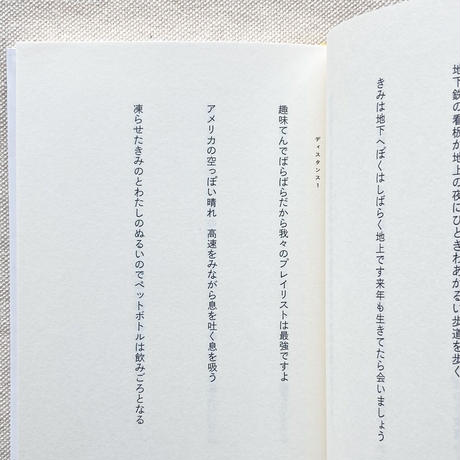 地下鉄の看板が地上の夜にひときわあかるい歩道を歩く
きみは地下へぼくはしばらく地上です来年も生きてたら会いましょう
ディスタンス1
趣味てんでばらばらだから我々のプレイリストは最強ですよ
アメリカの空っぽい晴れ　高速をみながら息を吐く息を吸う
凍らせたきみのとわたしのぬるいのでペットボトルは飲みごろとなる